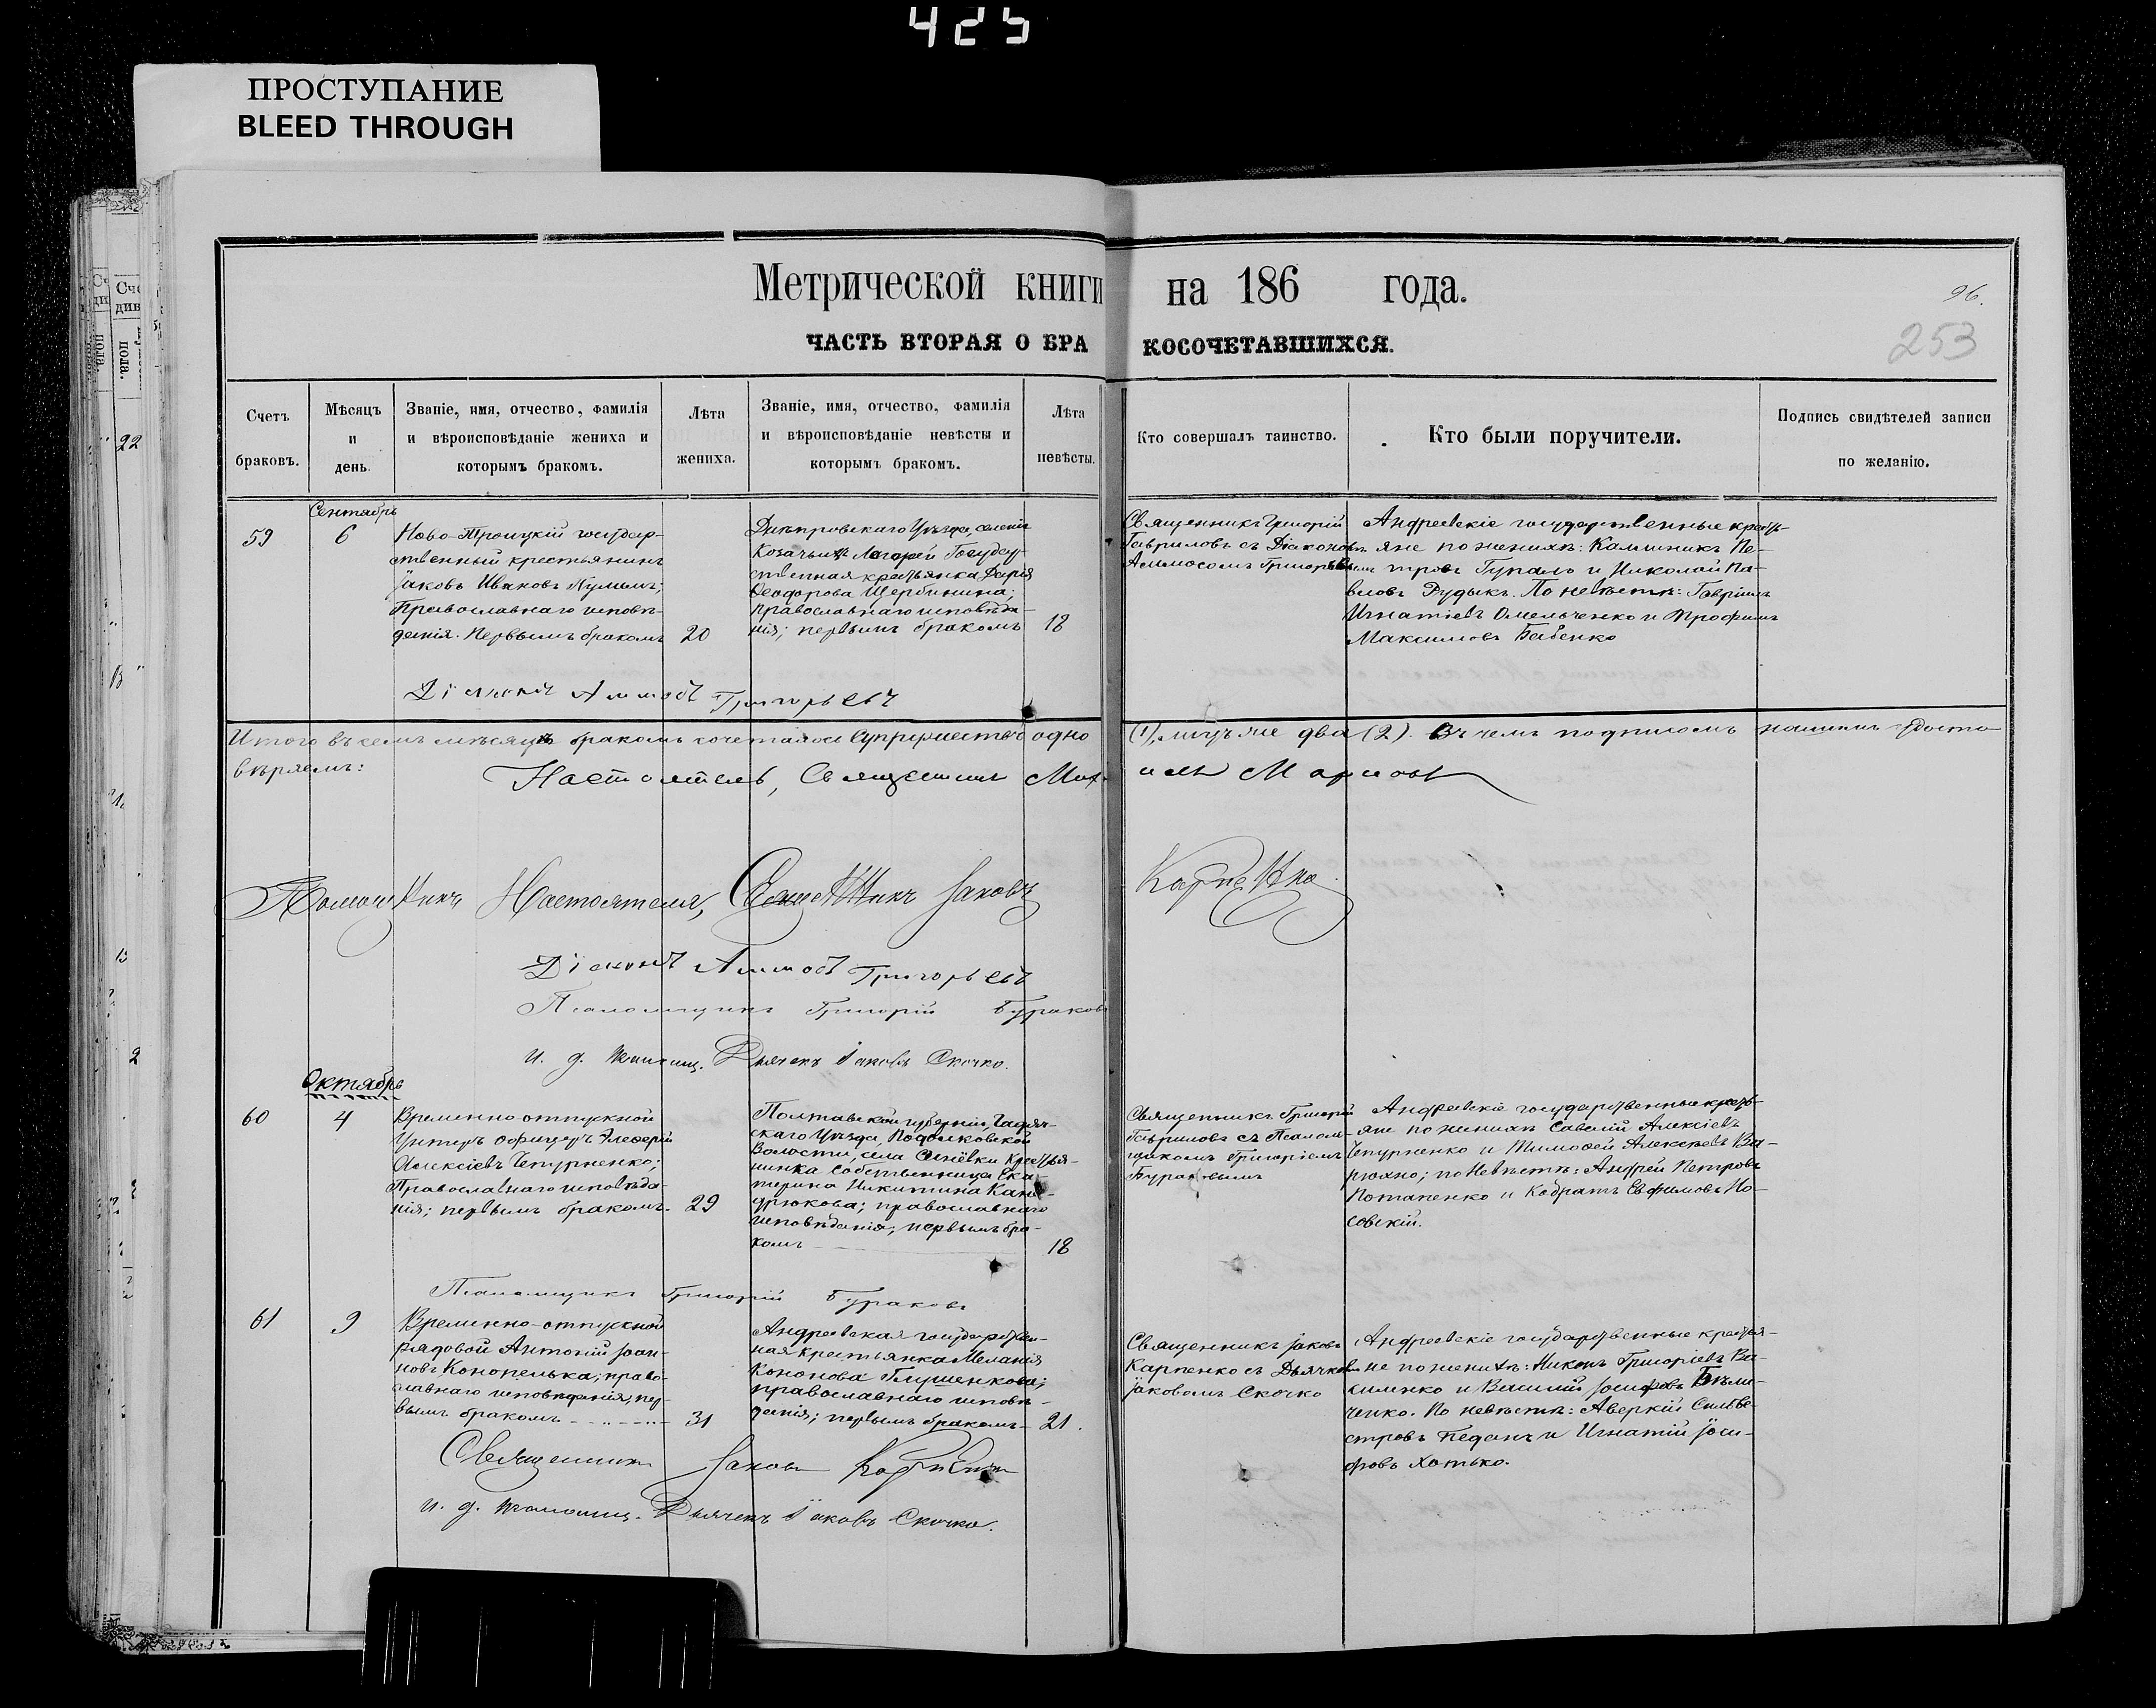 425
ПРОСТУПАНИЕ
BLEED THROUGH
Метрической книги на 186 года.
96.
253
ЧАСТЬ ВТОРАЯ О БРАКОСОЧЕТАВШИХСЯ.
Счетъ
браковъ.
Мѣсяцъ
и
день.
Званіе, имя, отчество, фамилія
и вѣроисповѣданіе жениха и
которымъ бракомъ.
Лѣта
жениха.
Званіе, имя, отчество, фамилія
и вѣроисповѣданіе невѣсты и
которымъ бракомъ.
Лѣта
невѣсты.
Кто совершалъ таинство.
Кто были поручители.
Подпись свидѣтелей записи
по желанію.
59
Сентябрь
6
Ново-Троицкій государ-
ственный крестьянинъ
Іаковъ Ивановъ
Православнаго исповѣ-
данія. Первымъ бракомъ
20
Днѣпровскаго Уѣзда, селенія
Козачьихъ Лагерей Государ-
ственная крестьянка Дарія
Ѳеодорова Щербинина;
православнаго исповѣда-
нія; первымъ бракомъ
18
Священникъ Григорій
Гавриловъ съ Діакономъ
Аммосомъ Григорьевымъ
Андреевскіе государственные кресть-
яне по женихѣ: Калиникъ Пе-
тровъ Гупало и Николай Па-
вловъ Рудыкъ. По невѣстѣ: Гавріилъ
Игнатіевъ Омельченко и Трофимъ
Максимовъ Бабенко
Діаконъ Аммосъ Григорьевъ
Итого въ семъ мѣсяцѣ бракомъ сочеталось супружество одно (1), мужие два (2). Въ чемъ подписомъ нашимъ удосто-
вѣряемъ:
Настоятель, Священникъ Михаилъ
Помощникъ Настоятеля, Священникъ Іаковъ Карпенко.
Діаконъ Аммосъ Григорьевъ
Псаломщикъ Григорій Бураковъ
и. д. псаломщ. Дьячекъ Іаковъ Скочко.
Октябрь
60
4
Временно-отпускной
Унтеръ офицеръ Елеѳерій
Алексіевъ Чепурненко;
Православнаго исповѣда-
нія; первымъ бракомъ.
29
Полтавской губерніи, Гадяч-
скаго Уѣзда,
Волости, села Крестья-
нинка Собственница Ека-
терина Никитина Кан-
дрюкова; православнаго
исповѣданія; первымъ бра-
комъ
18
Священникъ Григорій
Гавриловъ съ Псалом-
щикомъ Григоріемъ
Бураковымъ
Андреевскіе государственные кресть-
яне по женихѣ Савелій Алексіевъ
Чепурненко и Тимоѳей Алексѣевъ Ва-
рюхно; по невѣстѣ: Андрей Петровъ
Потапенко и Кодратъ Евфимовъ Но-
совскій.
Псаломщикъ Григорій Бураковъ
61
9
Временно-отпускной
рядовой Антоній Іоан-
новъ Кононелька; право-
славнаго исповѣданія, пер-
вымъ бракомъ
31
Андреевская государствен-
ная крестьянка Меланія
Кононова Глушенкова;
православнаго исповѣ-
данія; первымъ бракомъ
21.
Священникъ Іаковъ
Карпенко съ Дьячкомъ
Іаковомъ Скочко
Андреевскіе государственные крестья-
не по женихѣ: Никонъ Григоріевъ Ва-
силенко и Василій Іосифовъ Бѣли-
ченко. По невѣстѣ: Аверкій Сильве-
стровъ Педанъ и Игнатій Іоси-
фовъ Хотько.
Священникъ Іаковъ Карпенко
и. д. псаломщ. Дьячекъ Іаковъ Скочко.